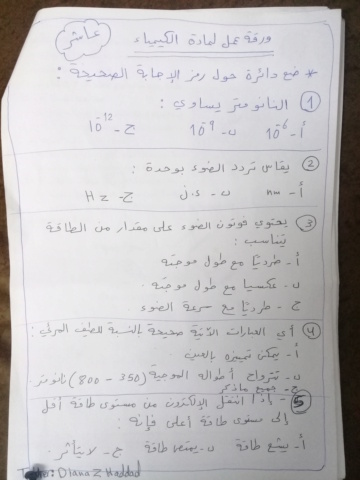 عاشر
ورقة عمل لمادة الكيمياء
* ضع دائرة حول رمز الإجابة الصحيحة :
① النانومتر يساوي :
أ- 10⁻⁶ ب- 10⁻⁹ ج- 10⁻¹²
② يقاس تردد الضوء بوحدة :
أ- nm ب- ج- Hz
③ يحتوي فوتون الضوء على مقدار من الطاقة
يتناسب :
أ- طرديًا مع طول موجته
ب- عكسيا مع طول موجته .
ج- طرديًا مع سرعة الضوء .
④ أي العبارات الآتية صحيحة بالنسبة للطيف المرئي :
أ- يمكن تمييزه بالعين
ب- تتراوح أطواله الموجية (350 - 800) نانومتر .
ج- جميع ماذكر
⑤ - إذا انتقل الإلكترون من مستوى طاقة أقل
إلى مستوى طاقة أعلى فإنه :
أ- يشع طاقة ب- يمتص طاقة ج- لا يتأثر .
Diana Z Haddad